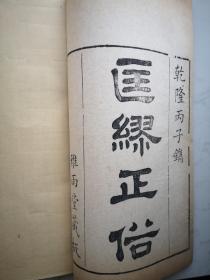 乾隆丙子鐫
匡繆正俗
雅雨堂藏板